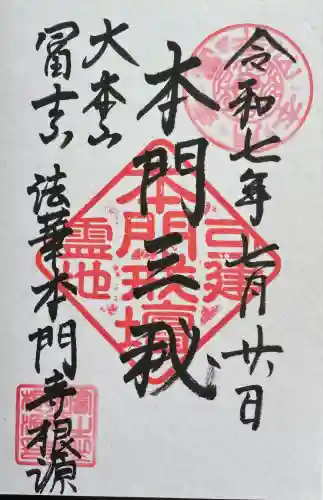 令和七年七月廿日
本門三戒
大本山
富士
法華本門寺根源
本門戒壇
霊地
建